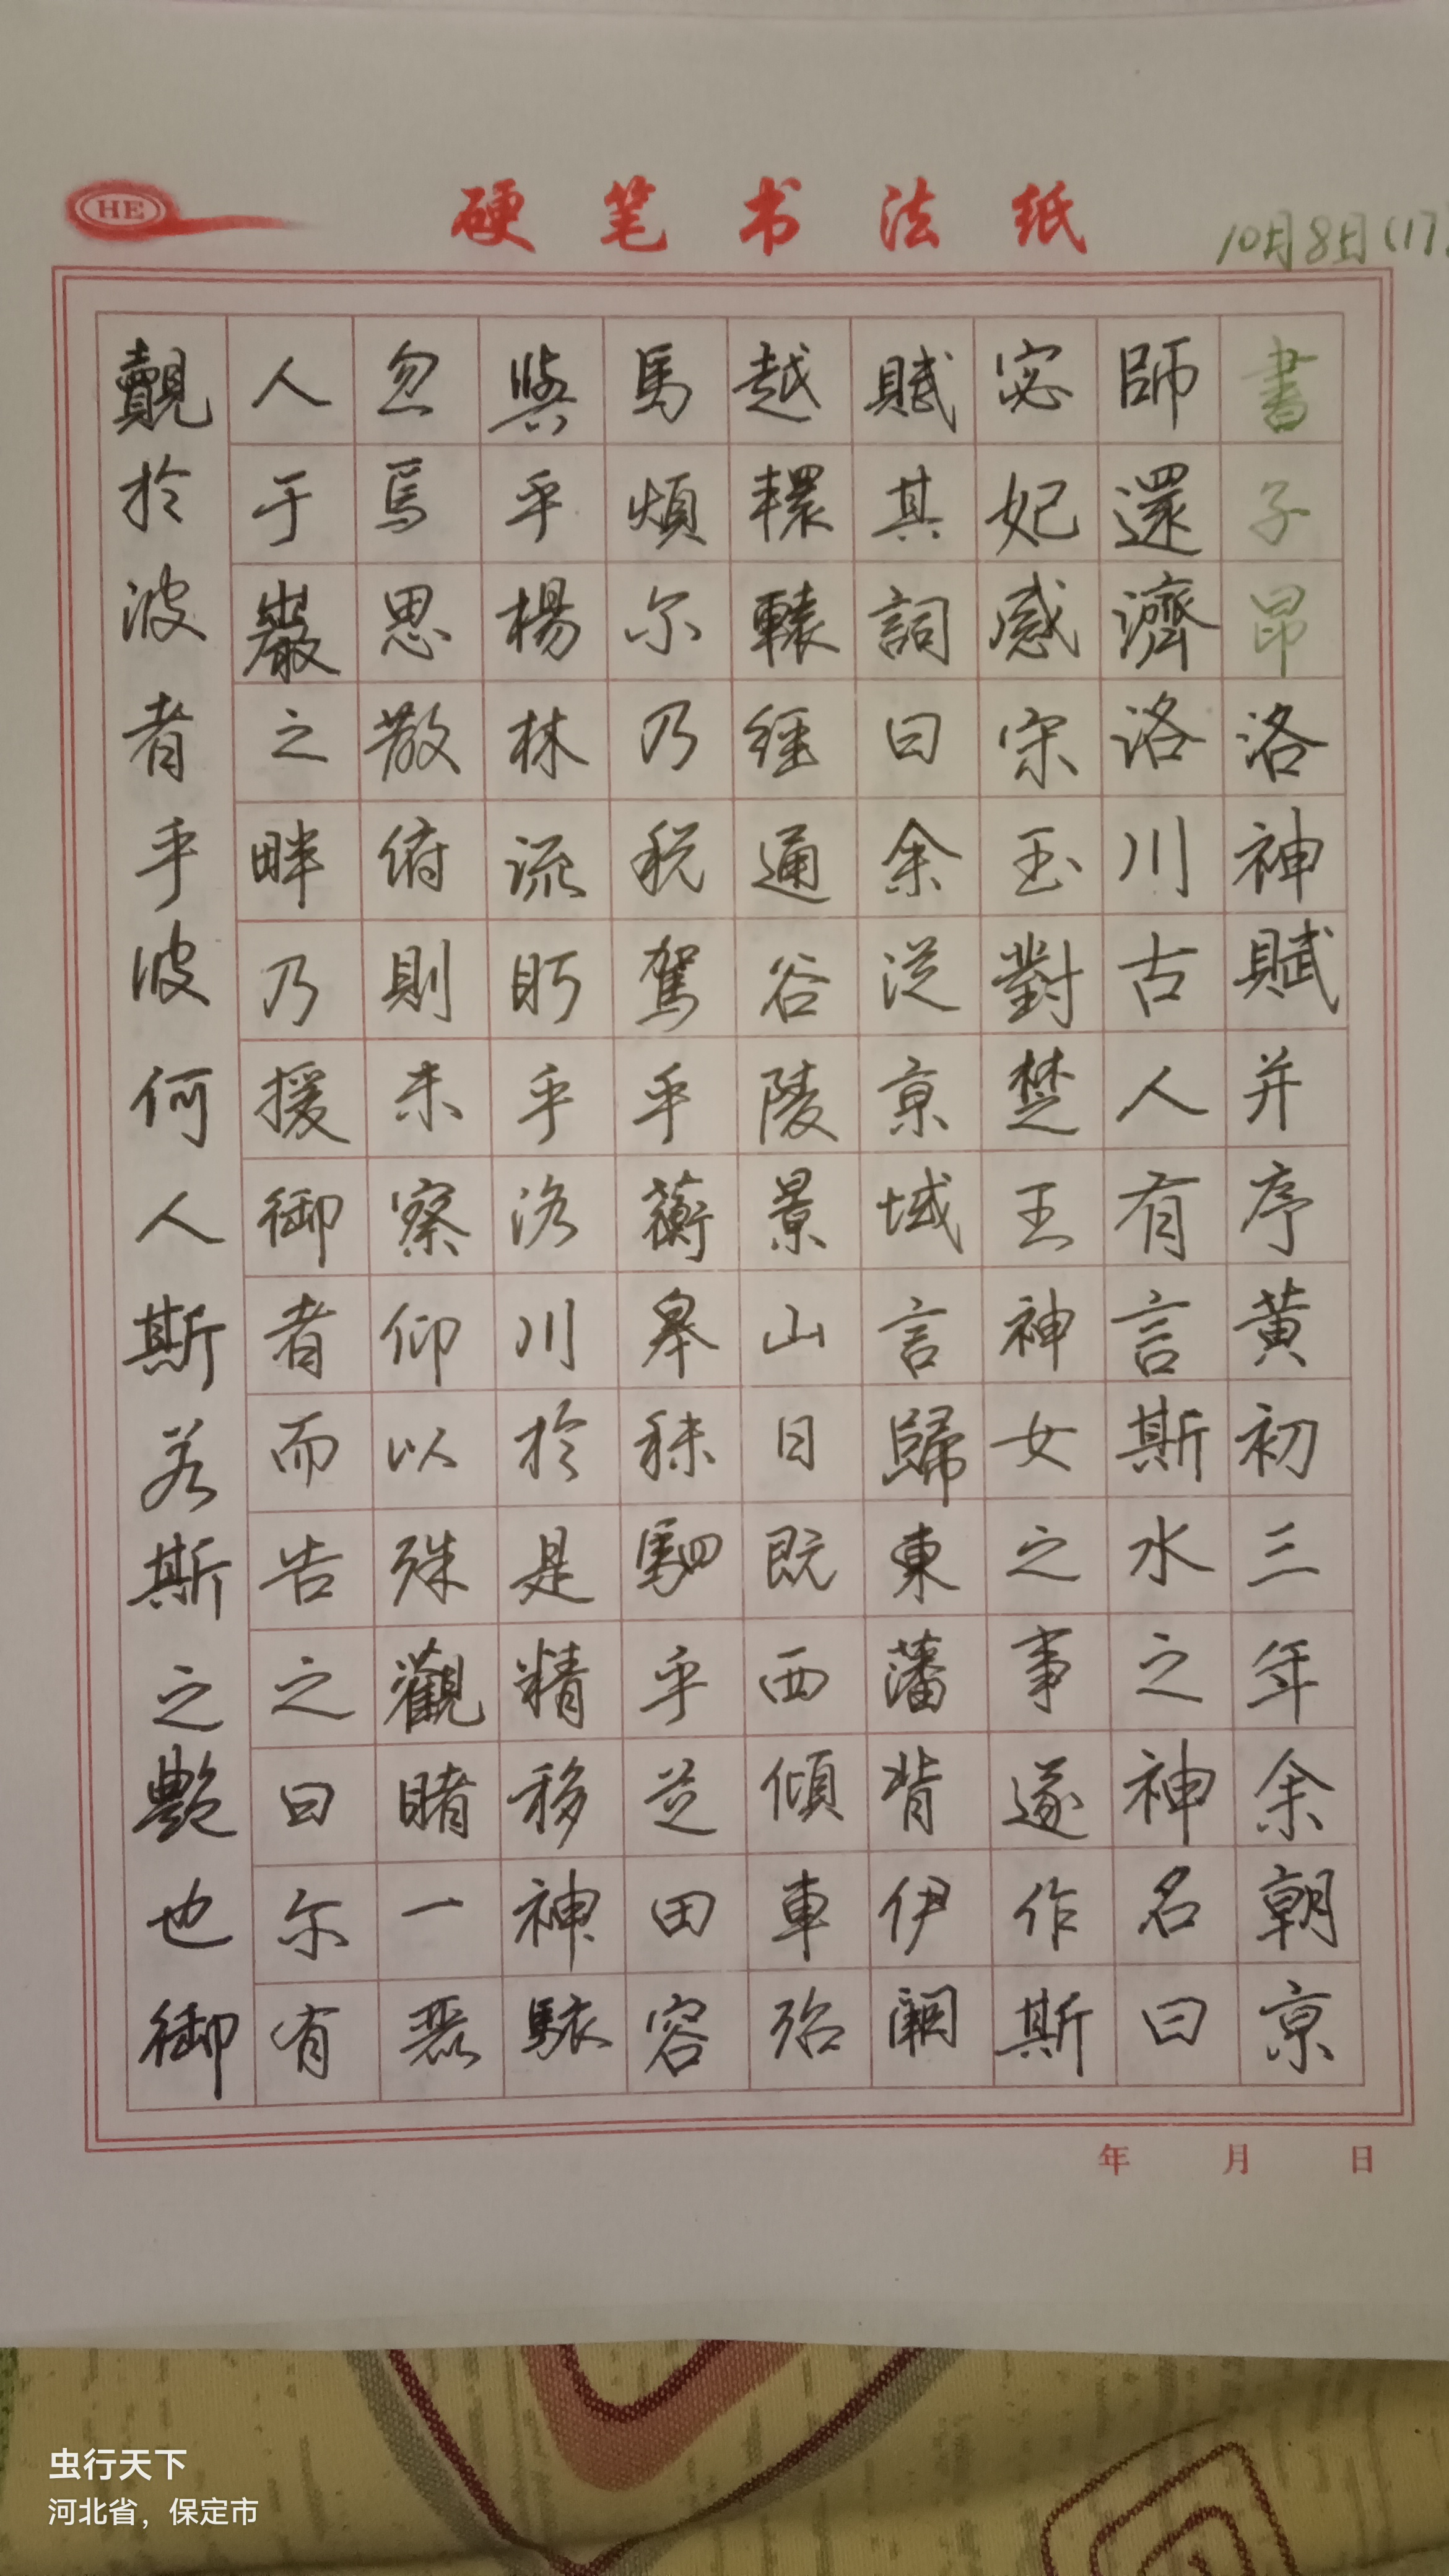 HE
硬笔书法纸
10月8日(17
書子昂洛神賦并序黃初三年余朝京
師還濟洛川古人有言斯水之神名曰
宓妃感宋玉對楚王神女之事遂作斯
賦其詞曰余從京域言歸東藩背伊闕
越轘轅經通谷陵景山日既西傾車殆
馬煩尔乃税駕乎蘅皋秣駟乎芝田容
與乎楊林流眄乎洛川於是精移神駭
忽焉思散俯則未察仰以殊觀睹一麗
人于巖之畔乃援御者而告之曰尔有
覿於波者乎波何人斯若斯之艷也御
年 月 日
虫行天下
河北省，保定市